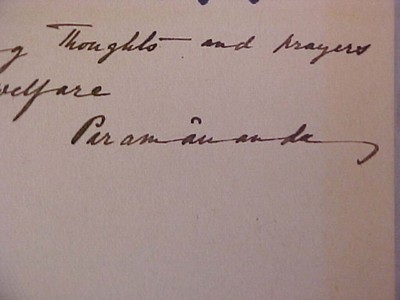 g Thoughts and prayers
welfare
Paramânanda